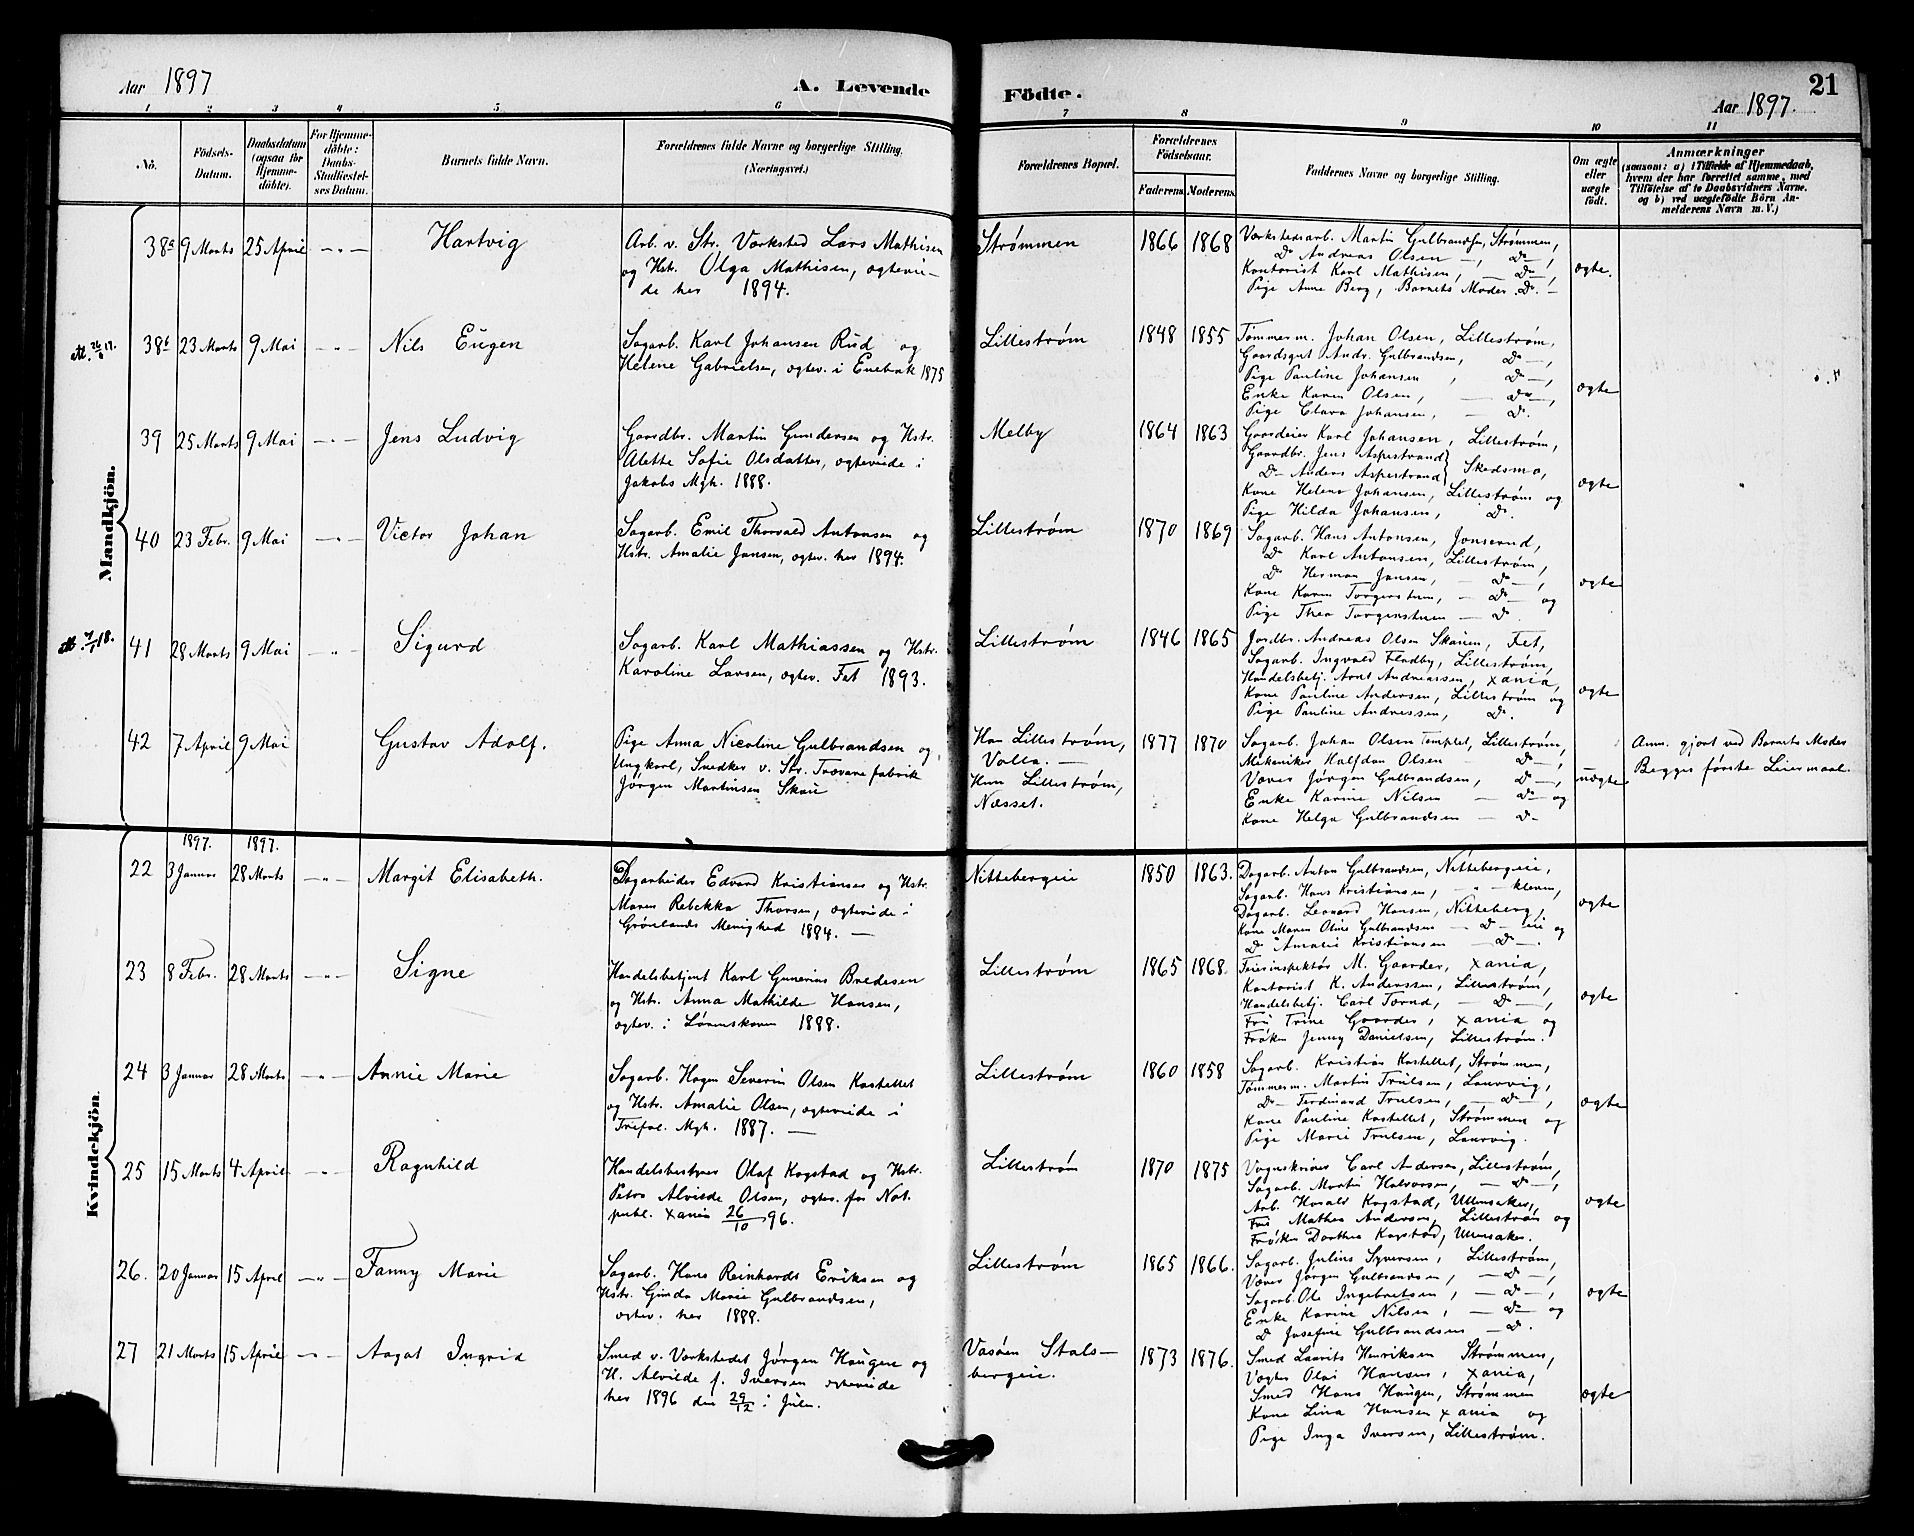 Aar 1897
A. Levende Födte.
21
Aar 1897.
1 2 3 4 5 6 7 8 9 10 11
No.
Födsels-Datum.
Daabsdatum (ogsaa for Hjemme-döbte).
For Hjemme-döbte: Daabs-Stadfæstel-ses Datum.
Barnets fulde Navn.
Forældrenes fulde Navne og borgerlige Stilling. (Næringsvei.)
Forældrenes Bopæl.
Forældrenes Födselsaar.
Faderens. Moderens.
Faddernes Navne og borgerlige Stilling.
Om ægte eller uægte födt.
Anmærkninger
(saasom: a) i Tilfælde af Hjemmedaab, hvem der har forrettet samme, med Tilföielse af to Daabsvidners Navne. og b) ved uægtefödte Börn An-melderens Navn m. V.)
Mandkjön.
38a 9 Marts 25 April Hartvig
Arb. v. Str. Værksted Lars Mathisen
og Hstr. Olga Mathisen, ægtevie-
de her 1894.
Strømmen 1866 1868
Værkstedsarb. Martin Gulbrandsen, Strømmen,
Do Andreas Olsen —, Do —,
Kontorist Karl Mathisen, — Do —,
Pige Anne Berg, Barnets Moder Do. —
ægte.
38b 23 Marts 9 Mai Nils Eugen
Sagarb. Karl Johansen Rud og
Helene Gabrielsen, ægtev. i Enebak 1875
Lillestrøm 1848 1855
Tømmerm. Johan Olsen, Lillestrøm,
Gaardsgut Andr. Gulbrandsen, Do —,
Pige Pauline Johansen, Do —,
Enke Karen Olsen, — Do —,
Pige Clara Johansen, — Do.
ægte
39 25 Marts 9 Mai Jens Ludvig
Gaardbr. Martin Gundersen og Hstr.
Alette Sofie Olsdatter, ægteviede i
Jakobs Mgh. 1888.
Melby 1864 1863
Gaardeier Karl Johansen, Lillestrøm,
Gaardbr. Jens Aspestrand
Do — Anders Aspestrand } Skedsmo,
Kone Helene Johansen, Lillestrøm og
Pige Hilda Johansen, Do.
ægte
40 23 Febr. 9 Mai Victor Johan
Sagarb. Emil Thorvald Antonsen og
Hstr. Amalie Jansen, ægtev. her 1894.
Lillestrøm 1870 1869
Sagarb. Hans Antonsen, Jonsrud,
Do Karl Antonsen, Lillestrøm,
Do Herman Jansen, — Do —,
Kone Karen Torgerstuen, — Do — og
Pige Thea Torgerstuen — Do
ægte
41 28 Marts 9 Mai Sigurd
Sagarb. Karl Mathiassen og Hstr.
Karoline Larsen, ægtev. Fet 1893.
Lillestrøm 1846 1865
Jordbr. Andreas Olsen Skauen, Fet,
Sagarb. Ingvald Fladby, Lillestrøm,
Handelsbetj. Arnt Andreassen, Xania,
Kone Pauline Andersen, Lillestrøm og
Pige Pauline Andressen, Do.
ægte
42 7 April 9 Mai Gustav Adolf.
Pige Anna Nicoline Gulbrandsen og
Ungkarl, Snedker v. Str. Trævarefabrik
Jørgen Martinsen Skau
Han Lillestrøm,
Volla. —
Hun Lillestrøm,
Næsset.
1877 1870
Sagarb. Johan Olsen Templet, Lillestrøm,
Mekaniker Halfdan Olsen — Do —,
Væver Jørgen Gulbrandsen, Do —,
Enke Karine Nilsen — Do — og
Kone Helga Gulbrandsen — Do —
uægte.
Anm. gjort ved Barnets Moder
Begges første Leiermaal.
Kvindekjön.
1897. 1897.
22 3 Januar 28 Marts Margit Elisabeth.
Dagarbeider Edvard Kristiansen og Hstr.
Maren Rebekka Thorsen, ægteviede i
Grønlands Menighed 1884. —
Nittebergeie 1850 1863.
Dagarb. Anton Gulbrandsen, Nittebergeie,
Sagarb. Hans Kristiansen,
Dagarb. Leonard Hansen, Nitteberg,
Kone Maren Oline Gulbrandsen — Do — eie og
Do Amalie Kristiansen — Do —.
ægte
23 8 Febr. 28 Marts Signe
Handelsbetjent Karl Gunerius Bredesen
og Hstr. Anna Mathilde Hansen,
ægtev. i Lørenskoven 1888.
Lillestrøm 1865 1868.
Feierinspektør M. Gaarder, Xania,
Kontorist K. Anderssen, Lillestrøm,
Handelsbetj. Carl Tornd, — Do —,
Fru Trine Gaarder, Xania og
Frøken Jenny Danielsen, Lillestrøm.
ægte
24 3 Januar 28 Marts Annie Marie
Sagarb. Hagen Severin Olsen Kastellet
og Hstr. Amalie Olsen, ægteviede i
Trefol. Mgh. 1887. —
Lillestrøm 1860 1858
Sagarb. Kristian Kastellet, Strømmen,
Tømmerm. Martin Trulsen, Laurvig,
Do — Ferdinand Trulsen, — Do —,
Kone Pauline Kastellet, Strømmen og
Pige Marie Trulsen, Laurvig.
ægte
25 15 Marts 4 April Ragnhild
Handelsbestyrer Olaf Kogstad og Hstr.
Petra Alvilde Olsen, ægtev. for Not.
publ. Xania 26/10 96.
Lillestrøm 1870 1875
Vognskriver Carl Andersen, Lillestrøm,
Sagarb. Martin Halvorsen, — Do —,
Arb. Harald Kogstad, Ullensaker,
Fru Mathea Andersen, Lillestrøm og
Frøken Dorthea Kogstad, Ullensaker.
ægte
26. 20 Januar 15 April Fanny Marie
Sagarb. Hans Reinhardt Eriksen og
Hstr. Ginda Marie Gulbrandsen,
ægtev. her 1888.
Lillestrøm 1865 1866.
Sagarb. Julius Syversen, Lillestrøm,
Væver Jørgen Gulbrandsen, — Do —,
Sagarb. Ole Ingebretsen, — Do —,
Enke Karine Nilsen, — Do — og
Do Josefine Gulbrandsen — Do.
ægte
27 21 Marts 15 April Aagot Ingrid
Smed v. Værkstedet Jørgen Haugen og
H. Alvilde f. Iversen ægteviede
her 1896 den 29/12 i Julen.
Vasøen Stals-
bergeie.
1873 1876.
Smed Laurits Henriksen Strømmen,
Vogter Olai Hansen, Xania,
Smed Hans Haugen, Strømmen
Kone Lina Hansen Xania og
Pige Inga Iversen, Lillestrøm.
ægte